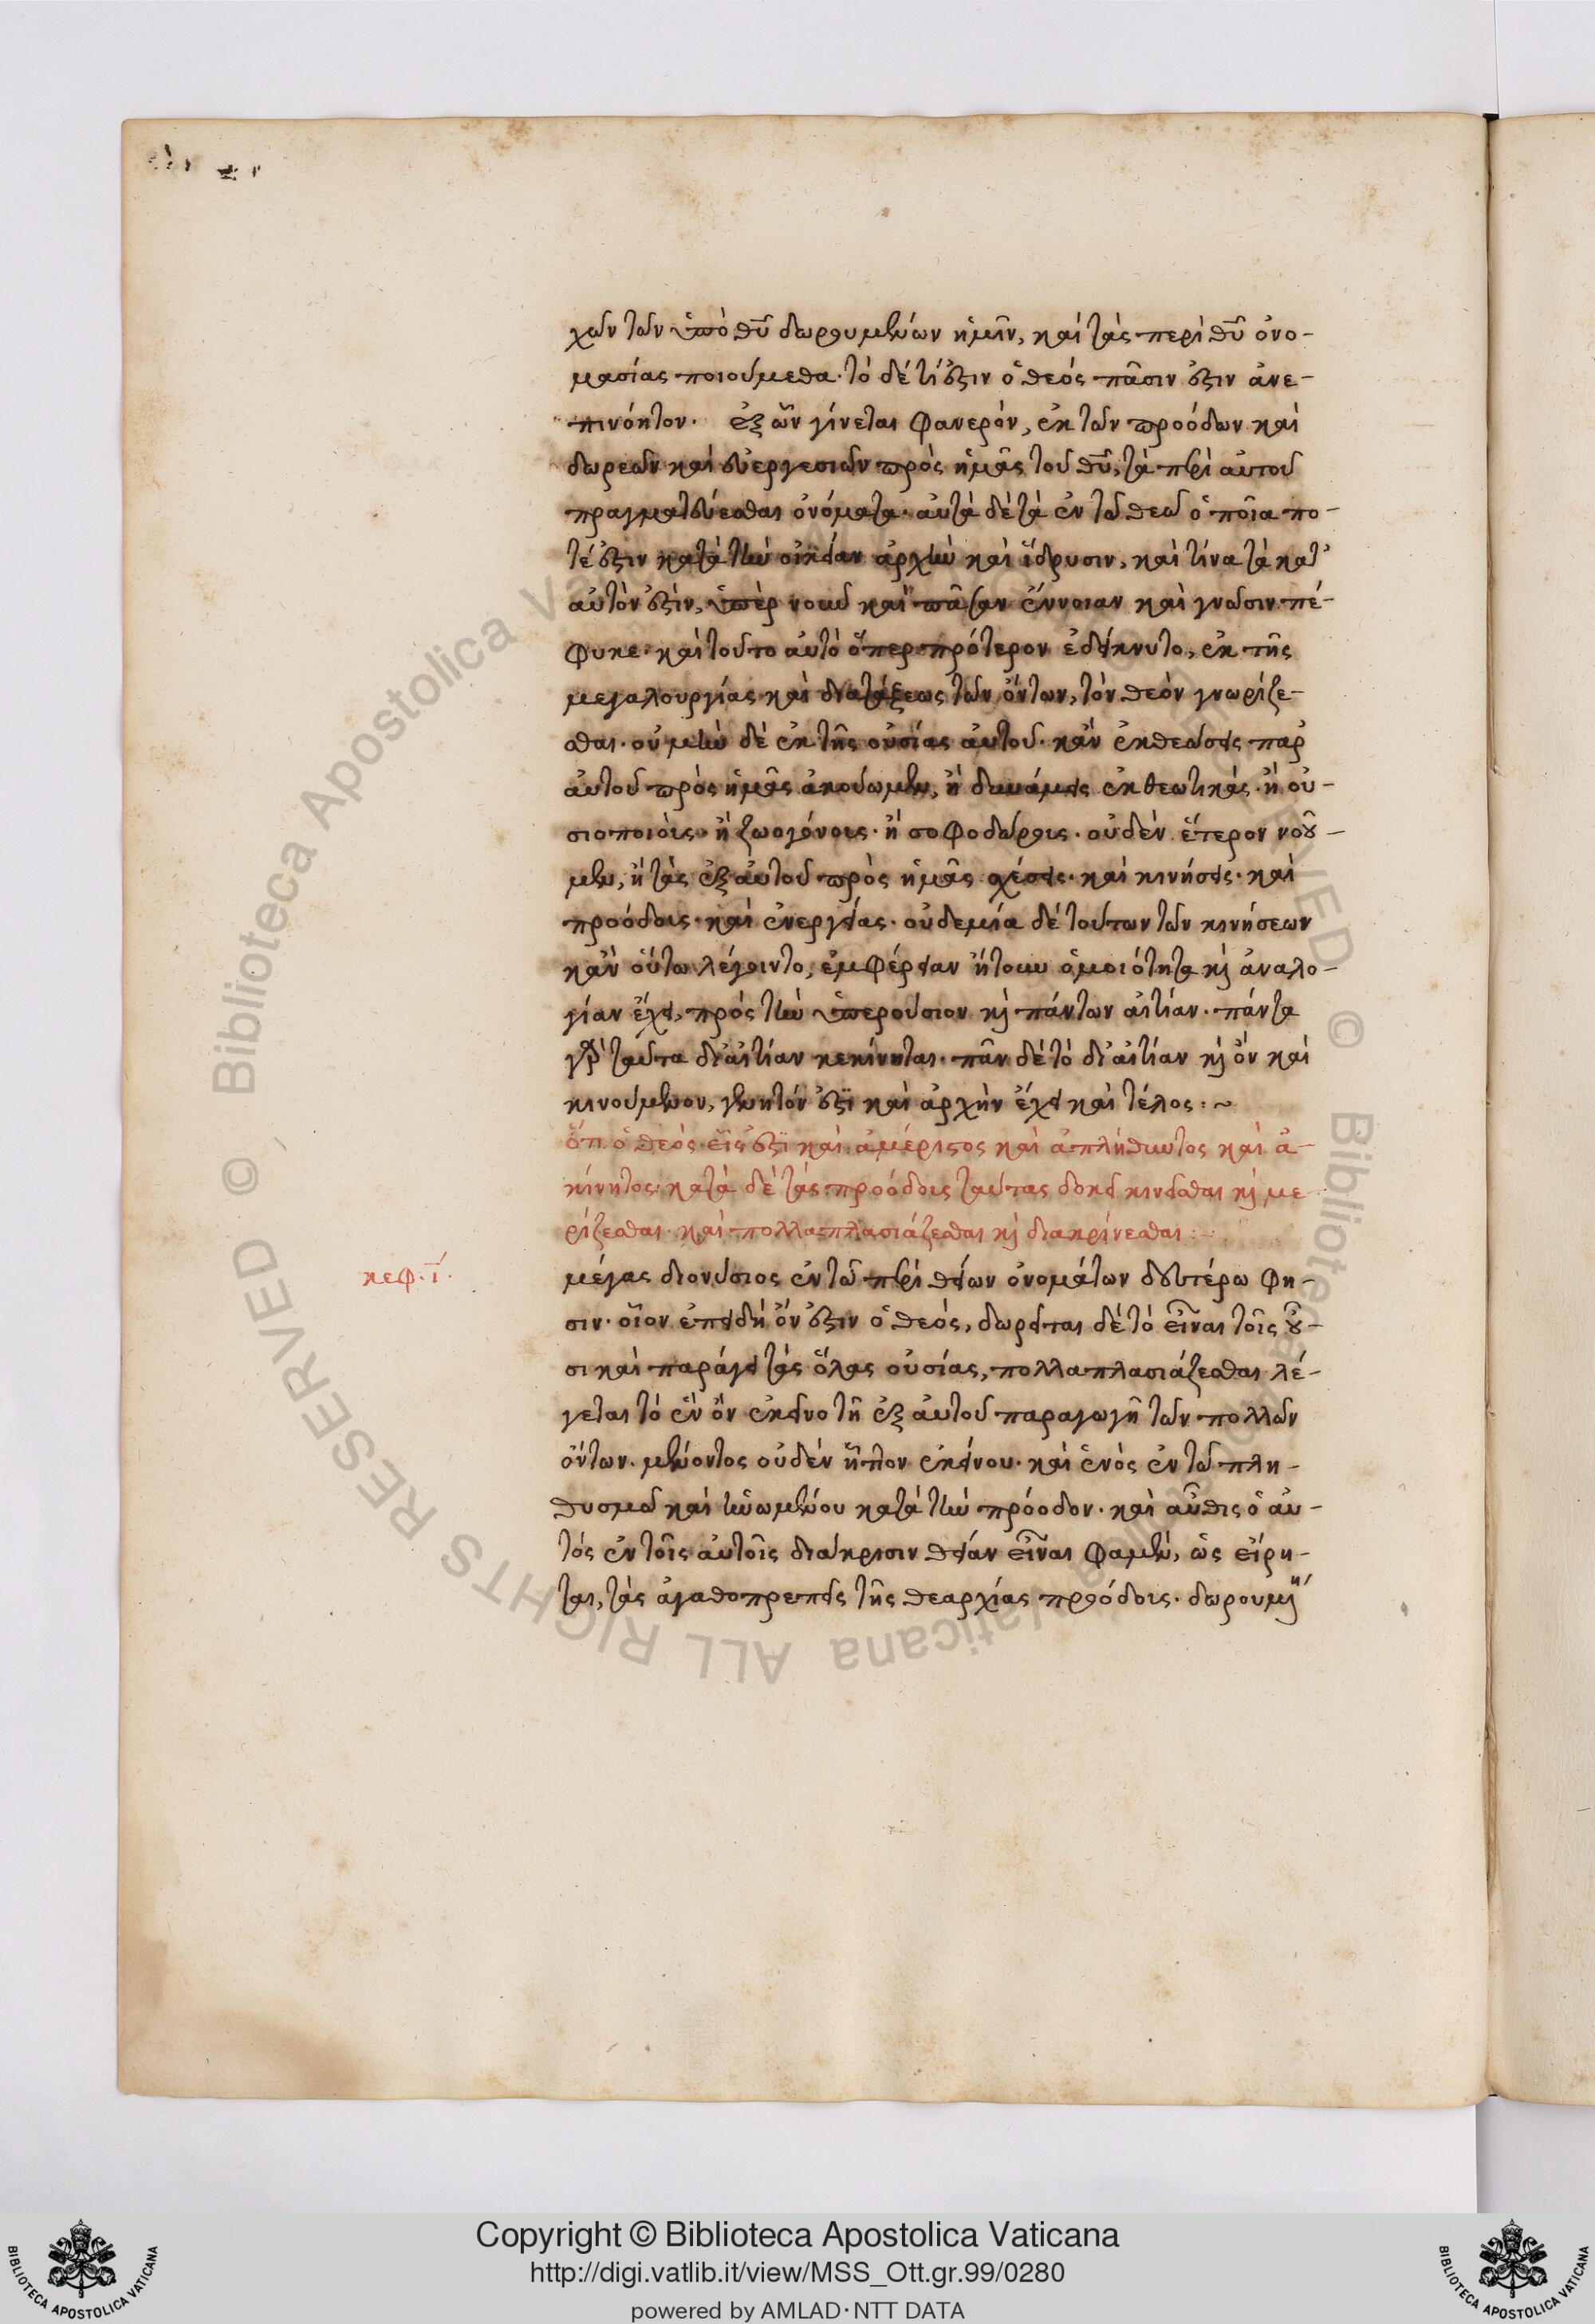 χῶν τῶν ὑπὸ θῦ δωρουμένων ἡμῖν, καὶ τὰς περὶ θῦ ὀνο-
μασίας ποιούμεθα· τὸ δὲ τί ἐστιν ὁ θεός πᾶσιν ἐστιν ἀνε-
πινόητον. ἐξ ὧν γίνεται φανερὸν, ἐκ τῶν προόδων καὶ
δωρεῶν καὶ εὐεργεσιῶν πρὸς ἡμᾶς τοῦ θῦ, τὰ περὶ αὐτοῦ
πραγματεύεσθαι ὀνόματα· αὐτὰ δὲ τὰ ἐν τῶ θεῶ ὁποῖα πο-
τέ ἐστιν κατὰ τὴν οἰκείαν ἀρχὴν καὶ ἵδρυσιν, καὶ τίνα τὰ κατ'
αὐτὸν ἐστὶν, ὑπὲρ νοῦν καὶ πᾶσαν ἔννοιαν καὶ γνῶσιν πέ-
φυκε· καὶ τοῦτο αὐτὸ ὅπερ πρότερον ἐδείκνυτο, ἐκ τῆς
μεγαλουργίας καὶ διατάξεως τῶν ὄντων, τὸν θεὸν γνωρίζε-
σθαι· οὐ μὴν δὲ ἐκ τῆς οὐσίας αὐτοῦ· κἂν ἐκθεώσεις παρ
αὐτοῦ πρὸς ἡμᾶς ἀκούωμεν, ἢ δυνάμεις ἐκθεωτικὰς· ἢ οὐ-
σιοποιοὺς· ἢ ζωογόνους· ἢ σοφοδώρους· οὐδὲν ἕτερον νοοῦ-
μεν, ἢ τὰς ἐξ αὐτοῦ πρὸς ἡμᾶς σχέσεις· καὶ κινήσεις· καὶ
προόδους· καὶ ἐνεργείας· οὐδεμία δὲ τούτων τῶν κινήσεων
κἂν οὕτω λέγοιντο, ἐμφέρειαν ἤτουν ὁμοιότητα κὶ ἀναλο-
γίαν ἔχει, πρὸς τὴν ὑπερούσιον κὶ πάντων αἰτίαν. πάντα
γὰρ ταῦτα δι' αἰτίαν κεκίνηται· πᾶν δὲ τὸ δι' αἰτίαν κὶ ὂν καὶ
κινούμενον, γενητόν ἐστϊ καὶ ἀρχὴν ἔχει καὶ τέλος : ~
ὅτι ὁ θεὸς εἷς ἐστϊ καὶ ἀμέριστος καὶ ἀπλήθυντος καὶ ἀ-
κίνητος· κατὰ δὲ τὰς προόδους ταύτας δοκεῖ κινεῖσθαι κὶ με
ρίζεσθαι· καὶ πολλαπλασιάζεσθαι κὶ διακρίνεσθαι :-
κεφ. ί.
μέγας διονύσιος ἐν τῶ περὶ θείων ὀνομάτων δευτέρω φη-
σιν· οἷον ἐπειδὴ ὄν ἐστιν ὁ θεός, δωρεῖται δὲ τὸ εἶναι τοῖς οὖ-
σι καὶ παράγει τὰς ὅλας οὐσίας, πολλαπλασιάζεσθαι λέ-
γεται τὸ ἓν ὂν ἐκεῖνο τῆ ἐξ αὐτοῦ παραγωγῆ τῶν πολλῶν
ὄντων. μένοντος οὐδὲν ἧττον ἐκείνου· καὶ ἑνὸς ἐν τῶ πλη-
θυσμῶ καὶ ἡνωμένου κατὰ τὴν πρόοδον· καὶ αὖθις ὁ αὐ-
τός ἐν τοῖς αὐτοῖς διάκρισιν θείαν εἶναι φαμὲν, ὡς εἴρη-
ται, τὰς ἀγαθοπρεπεῖς τῆς θεαρχίας προόδους· δωρουμένη